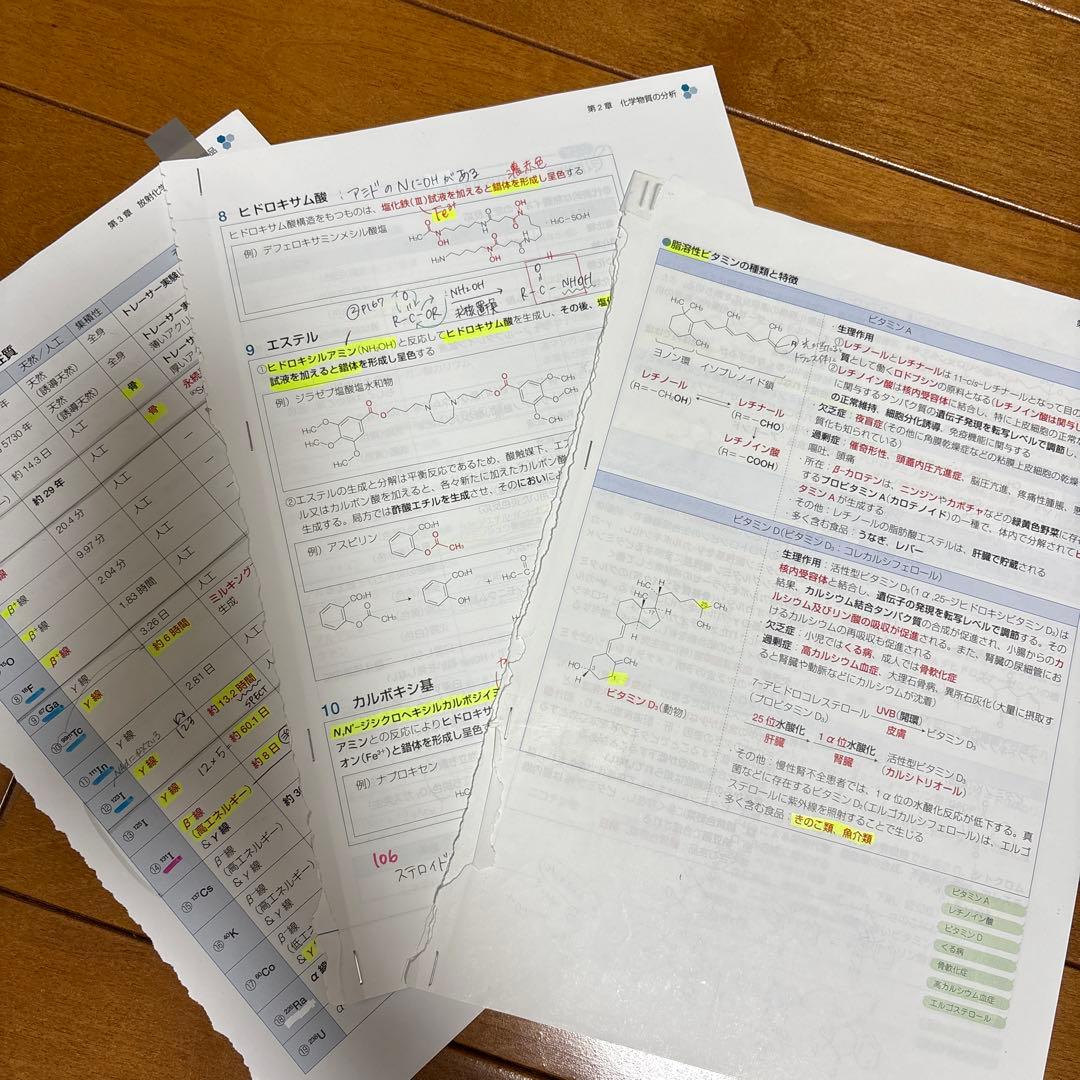 第3章 放射化学
品
性質
天然/人工
集積性
トレーサー実験
天然
(誘導天然)
全身
天然
(誘導天然)
全身
人工
骨
人工
骨
5730年
約14.3日
約29年
20.4分
人工
9.97分
人工
2.04分
人工
1.83時間
人工
ミルキング
生成
3.26日
約6時間
2.81
約13.2時間
SPECT
12×5
約60.1日
約8日
β⁺線
β⁺線
β⁻線
γ線
γ線
γ線
γ線
β⁻線
(高エネルギー)
&γ線
β⁻線
(高エネルギー)
&γ線
β⁻線
(高エネルギー)
&γ線
¹⁵O
⑧ ¹⁸F
⑨ ⁶⁷Ga
⑪ ¹¹¹In
⑫ ¹²³I
⑬ ¹²⁵I
⑭ ¹³¹I
⑮ ¹³⁷Cs
⑯ ⁴⁰K
⑰ ⁶⁰Co
⑱ ²²⁶Ra
α線
第2章 化学物質の分析
8 ヒドロキサム酸
:アミドのNに-OHがある
濃赤色
ヒドロキサム酸構造をもつものは、塩化鉄(Ⅲ)試液を加えると錯体を形成し呈色する
Fe³⁺
例)デフェロキサミンメシル酸塩
H₃C
OH
H₂N
OH
OH
H₃C-SO₃H
②P167
R-C-OR
NH₂OH
求核置換
R-C-NHOH
9 エステル
①ヒドロキシルアミン(NH₂OH)と反応してヒドロキサム酸を生成し、その後、塩化
試液を加えると錯体を形成し呈色する
例)ジラゼプ塩酸塩水和物
②エステルの生成と分解は平衡反応であるため、酸触媒下、エ
ル又はカルボン酸を加えると、各々新たに加えたカルボン酸
生成する。局方では酢酸エチルを生成させ、そのにおいに
例)アスピリン
CO₂H
CH₃
CO₂H
CH₃
CO₂H
OH
+
H₃C
10 カルボキシ基
N,N'-ジシクロヘキシルカルボジイミ
アミンとの反応によりヒドロキサ
オン(Fe³⁺)と錯体を形成し呈色
例)ナプロキセン
H₃C
106
ステロイド
●脂溶性ビタミンの種類と特徴
ビタミンA
H₃C
CH₃
CH₃
CH₃
R
CH₃
ヨノン環
イソプレノイド鎖
レチノール
(R=−CH₂OH)
レチナール
(R=−CHO)
レチノイン酸
(R=−COOH)
生理作用
①レチノールとレチナールは11-cis-レチナールとなって目の
質として働くロドプシンの原料となる(レチノイン酸は関与し
②レチノイン酸は核内受容体に結合し、特に上皮細胞の正常
に関与するタンパク質の遺伝子発現を転写レベルで調節し、
の正常維持、細胞分化誘導、免疫機能に関与する
欠乏症:夜盲症(その他に角膜乾燥症などの粘膜上皮細胞の乾燥
質化も知られている)
過剰症:催奇形性、頭蓋内圧亢進症、脳圧亢進、疼痛性腫脹、
嘔吐、頭痛
・所在:β-カロテンは、ニンジンやカボチャなどの緑黄色野菜に存在
するプロビタミンA(カロテノイド)の一種で、体内で分解されてビ
タミンAが生成する
・その他:レチノールの脂肪酸エステルは、肝臓で貯蔵される
・多く含む食品:うなぎ、レバー
ビタミンD(ビタミンD₃:コレカルシフェロール)
HO
CH₃
CH₃
CH₂
ビタミンD₃(動物)
生理作用:活性型ビタミンD₃(1α,25-ジヒドロキシビタミンD₃)は
核内受容体と結合し、遺伝子の発現を転写レベルで調節する。その
結果、カルシウム結合タンパク質の合成が促進され、小腸からのカ
ルシウム及びリン酸の吸収が促進される。また、腎臓の尿細管にお
けるカルシウムの再吸収も促進される
欠乏症:小児ではくる病、成人では骨軟化症
過剰症:高カルシウム血症、大理石骨病、異所石灰化(大量に摂取す
ると腎臓や動脈などにカルシウムが沈着)
7-デヒドロコレステロール
(プロビタミンD₃)
UVB(開環)
皮膚
ビタミンD₃
25位水酸化
肝臓
1α位水酸化
腎臓
活性型ビタミンD₃
(カルシトリオール)
・その他:慢性腎不全患者では、1α位の水酸化反応が低下する。真
菌などに存在するビタミンD₂(エルゴカルシフェロール)は、エルゴ
ステロールに紫外線を照射することで生じる
多く含む食品:きのこ類、魚介類
ビタミンA
レチノイン酸
ビタミンD
くる病
骨軟化症
高カルシウム血症
エルゴステロール